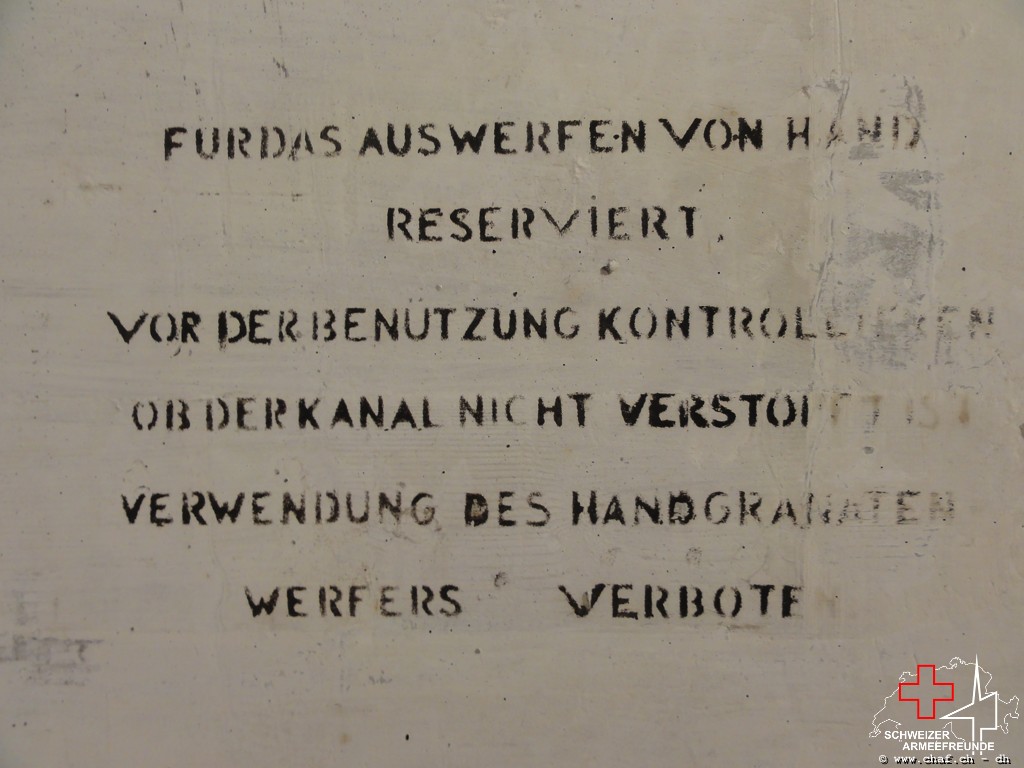 FUR DAS AUSWERFEN VON HAND
RESERVIERT.
VOR DER BENUTZUNG KONTROLLIEREN
OB DER KANAL NICHT VERSTOPFT IST
VERWENDUNG DES HANDGRANATEN
WERFERS VERBOTEN
SCHWEIZER
ARMEEFREUNDE
© www.chaf.ch - dh